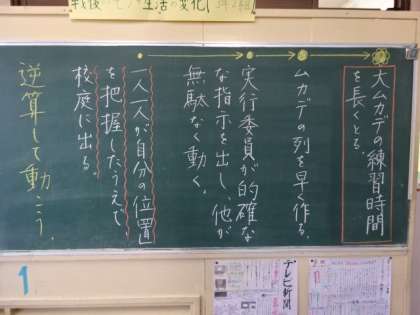 大ムカデの練習時間
を長くとる。
ムカデの列を早く作る。
実行委員が的確な
な指示を出し、他が
無駄なく動く。
一人一人が自分の位置
を把握したうえで
校庭に出る。
逆算して動こう。
1
テレビ新聞